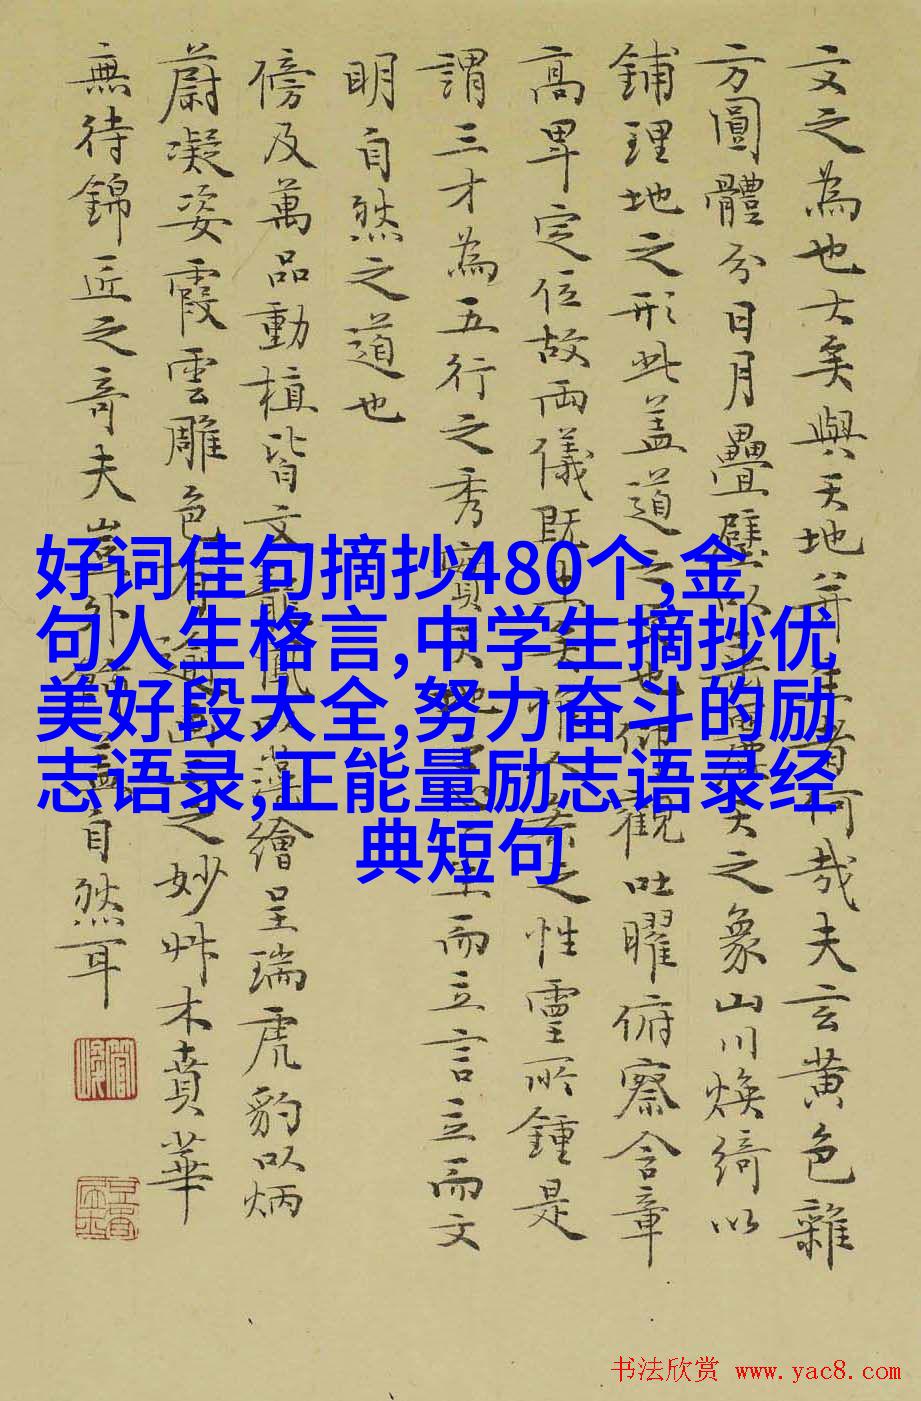 文之為也大矣與天地并生者何哉夫玄黄色雜
方圓體分日月疊璧以垂麗天之象山川煥綺以
鋪理地之形此盖道之文也仰觀吐曜俯察含章
高卑定位故兩儀既生矣惟人参之性靈所鍾是
謂三才為五行之秀實天地之心生而立言立而文
明自然之道也
傍及萬品動植皆文龍鳳以藻繪呈瑞虎豹以炳
蔚凝姿霞雲雕色有逾畫工之妙艸木賁華
無待錦匠之奇夫豈外飾盖自然耳
好词佳句摘抄480个,金
句人生格言,中学生摘抄优
美好段大全,努力奋斗的励
志语录,正能量励志语录经
典短句
书法欣赏 www.yac8.com